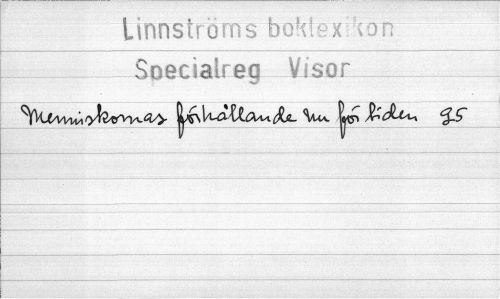 Linnströms boklexikon
Specialreg Visor
Menniskornas förhållande nu för tiden 95